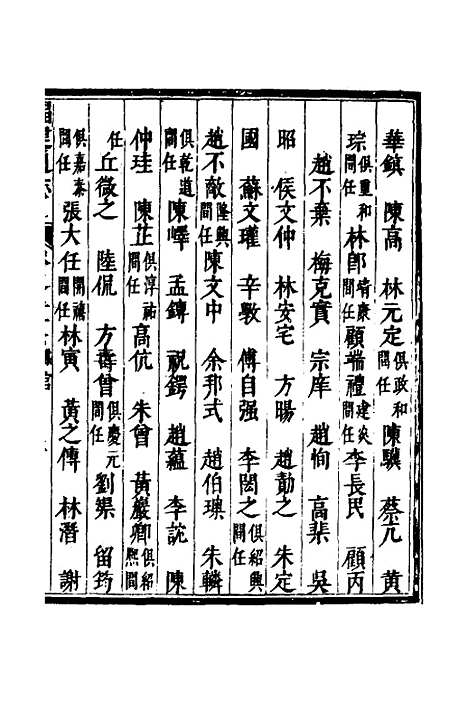 華鎮　陳高　林元定俱政和間任陳驥　蔡元　黃
琮俱重和間任林郎靖康間任顧端禮建炎間任李長民　顧丙
趙不棄　梅克實　宗庠　趙恂　高棐　吳
昭　侯文仲　林安宅　方暘　趙勛之　朱定
國　蘇文瓘　辛敦　傅自强　李閎之俱紹興間任
趙不敵隆興間任陳文中　余邦式　趙伯璵　朱轔
俱乾道間任陳嶧　孟鑄　祝鍔　趙蘊　李詵　陳
仲珪　陳芷俱淳祐間任高伉　朱曾　黃巖卿俱紹熙間
任　丘微之　陸侃　方燾曾俱慶元間任劉榘　留筠
俱嘉泰間任張大任開禧間任林寅　黃之傳　林潛　謝